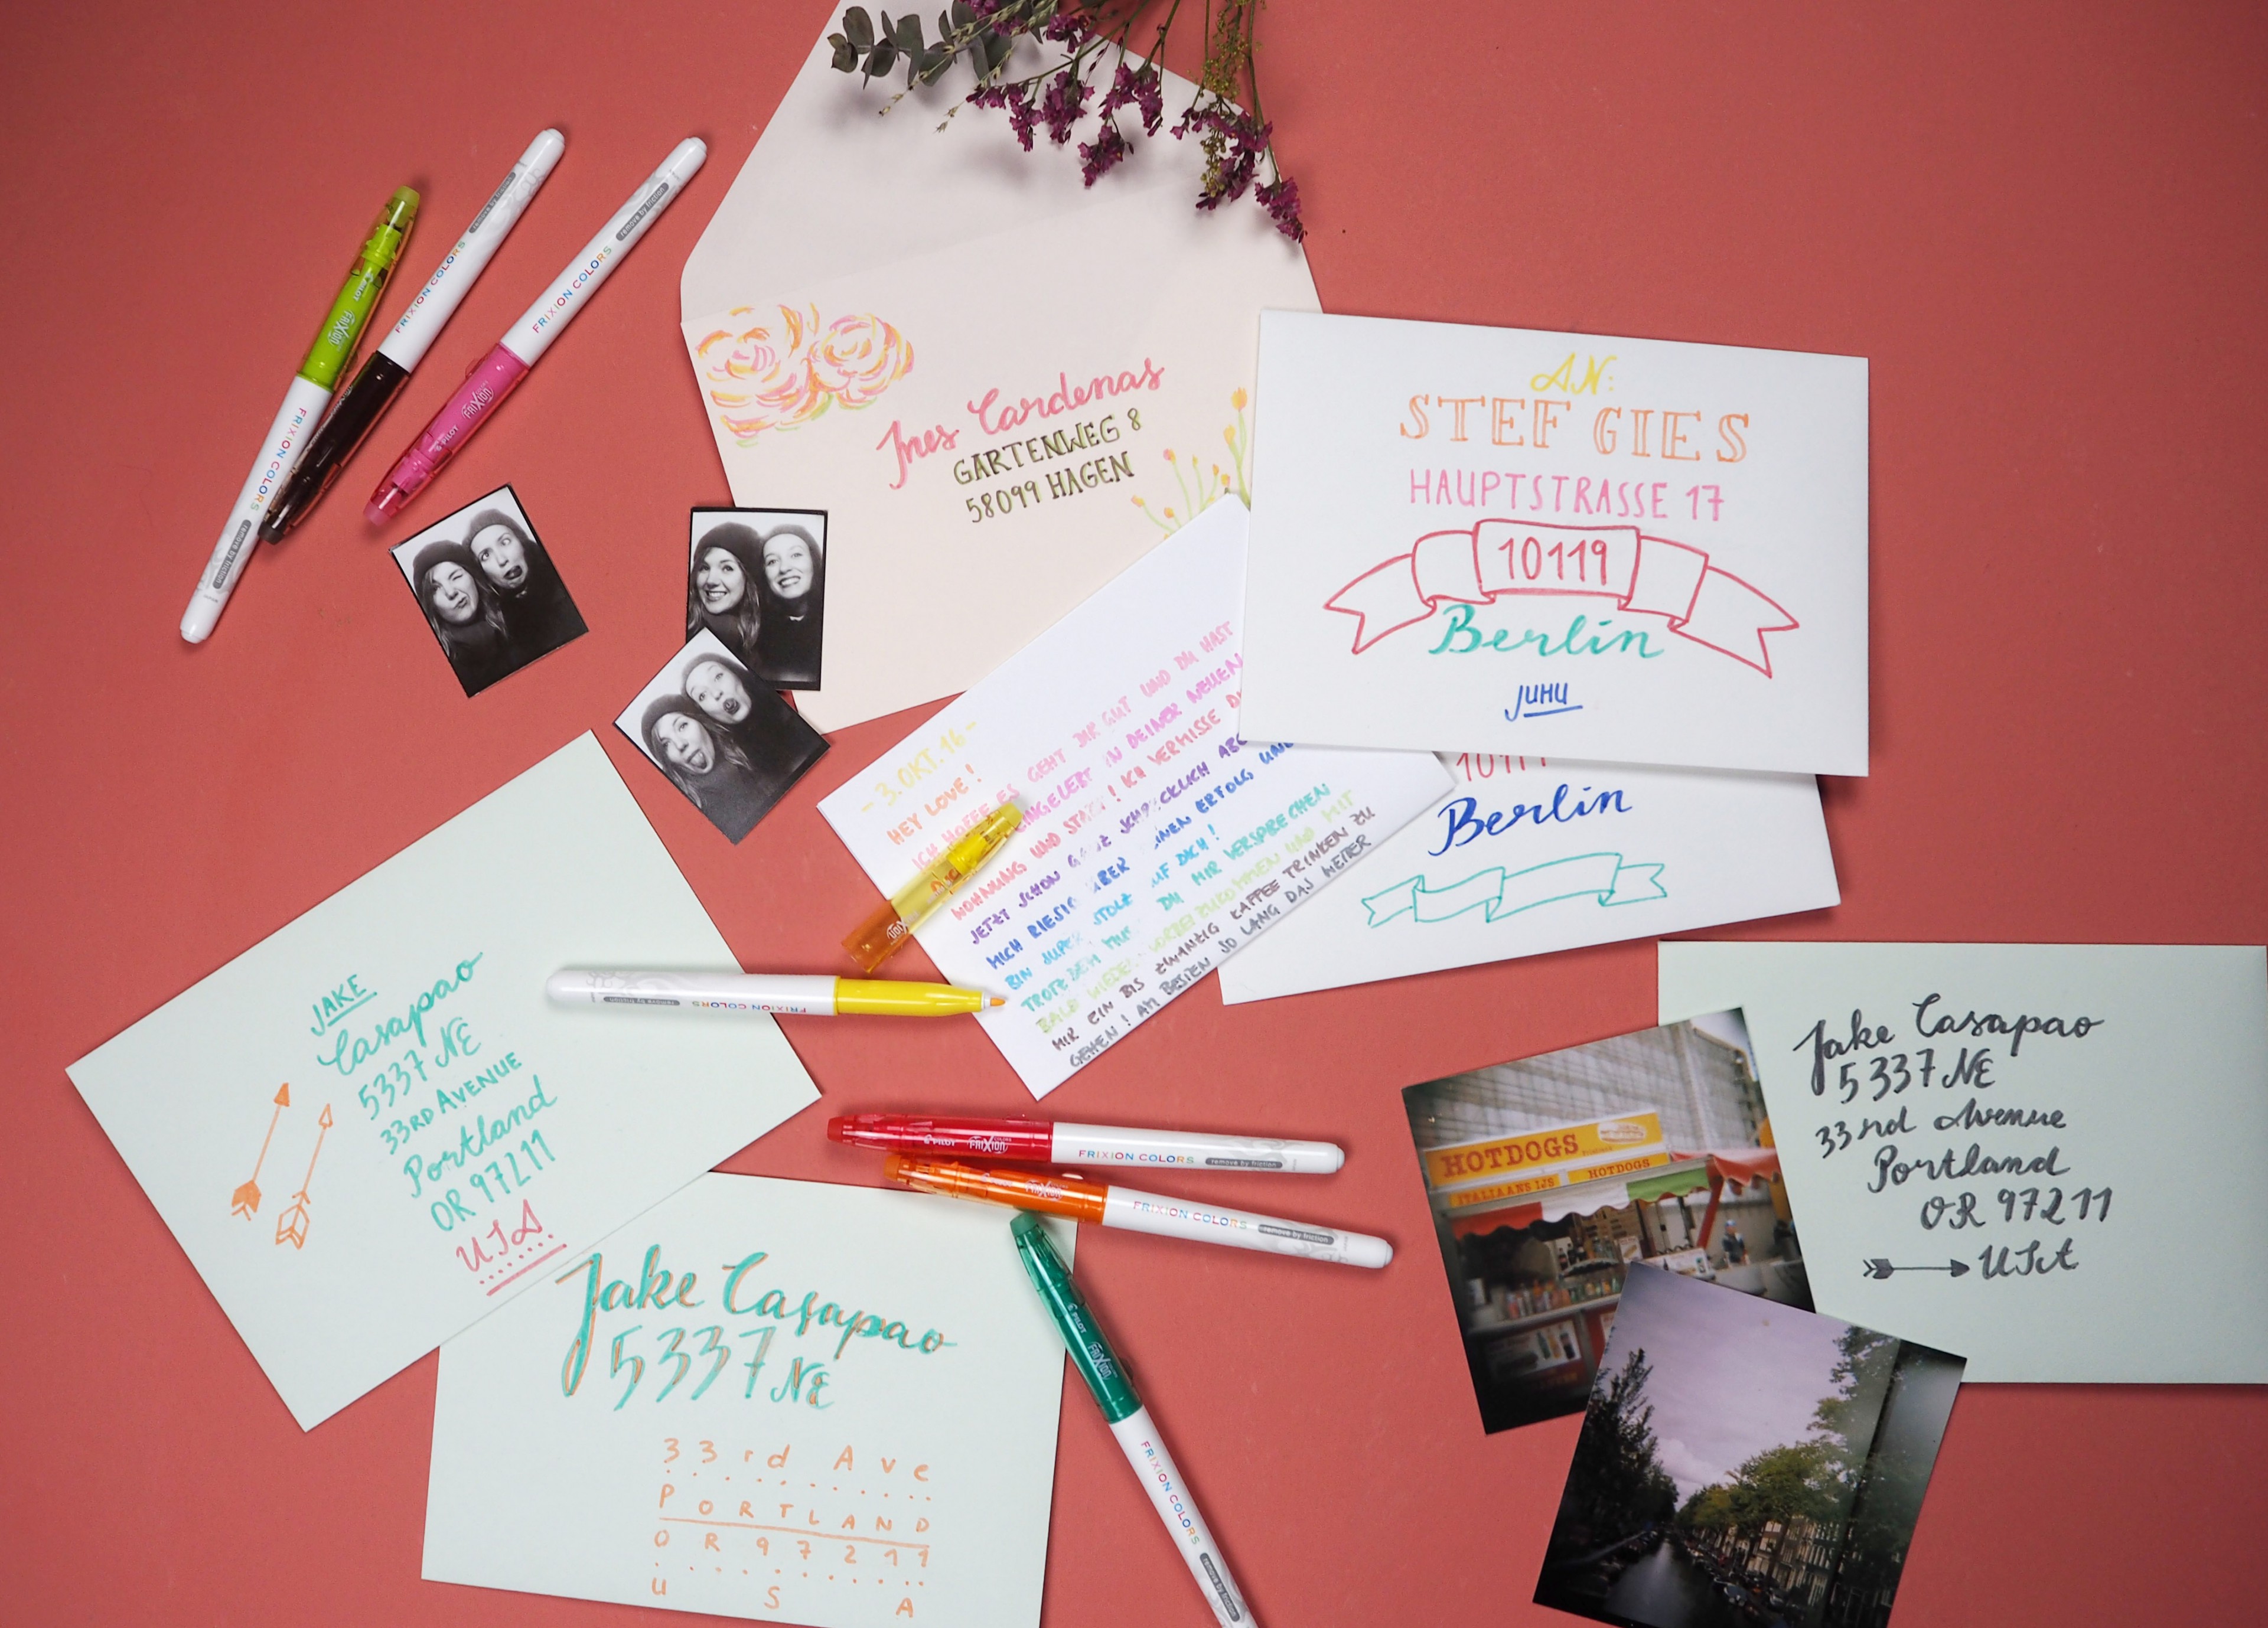 FRIXION COLORS
remove by friction
FRIXION COLORS
remove by friction
FRIXION COLORS
remove by friction
PILOT
FRIXION
PILOT
FRIXION
Ines Cardenas
GARTENWEG 8
58099 HAGEN
AN:
STEF GIES
HAUPTSTRASSE 17
10119
Berlin
JUHU
Berlin
- 3. OKT. 16 -
HEY LOVE!
ICH HOFFE ES GEHT DIR GUT UND DU HAST
EINGELEBT IN DEINER NEUEN
WOHNUNG UND STADT! ICH VERMISSE
JETZT SCHON GANZ SCHRECKLICH
MICH RIESIG ÜBER ERFOLG UND
BIN SUPER STOLZ AUF DICH!
TROTZDEM DU MIR VERSPRECHEN
BALD WIEDER VORBEIZUKOMMEN UND MIT
MIR EIN BIS ZWANZIG KAFFEE TRINKEN ZU
GEHEN! AM BESTEN SO LANG DAS WETTER
FRIXION COLORS
remove by friction
JAKE
Casapao
5337 NE
33RD AVENUE
Portland
OR 97211
USA
PILOT FRIXION
FRIXION COLORS remove by friction
FRIXION COLORS remove by friction
PILOT
FRIXION
FRIXION COLORS
remove by friction
Jake Casapao
5337 NE
33rd Ave
PORTLAND
OR 97211
USA
Jake Casapao
5337 NE
33rd Avenue
Portland
OR 97211
USA
HOTDOGS
ITALIAANS IJS
HOTDOGS